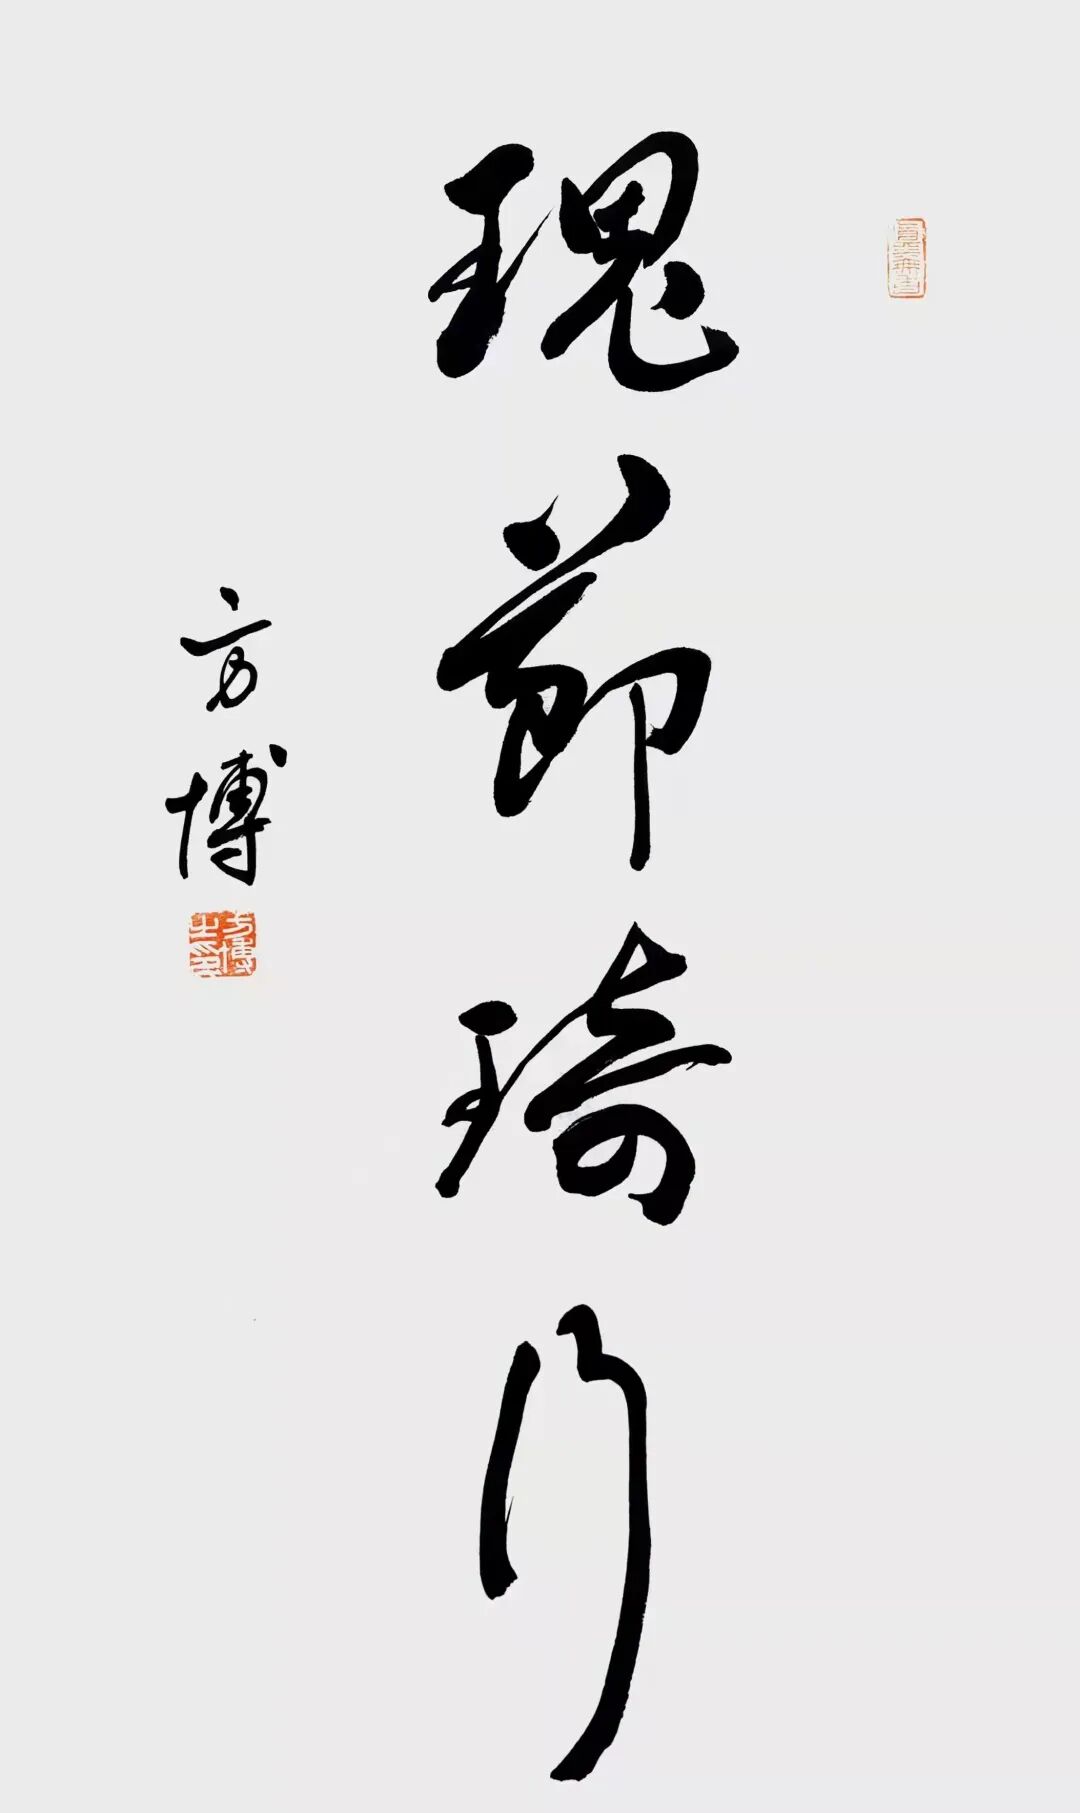 瑰節琦行
方博
方博之印